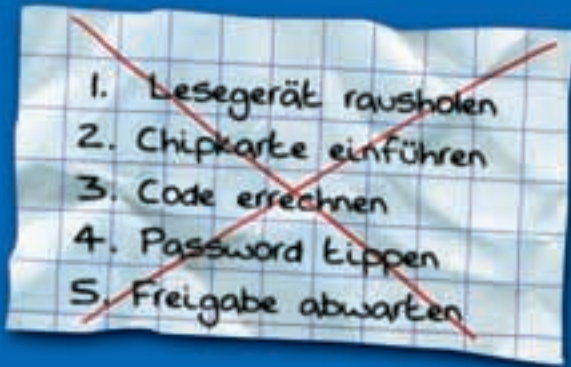 1. Lesegerät rausholen
2. Chipkarte einführen
3. Code errechnen
4. Password tippen
5. Freigabe abwarten